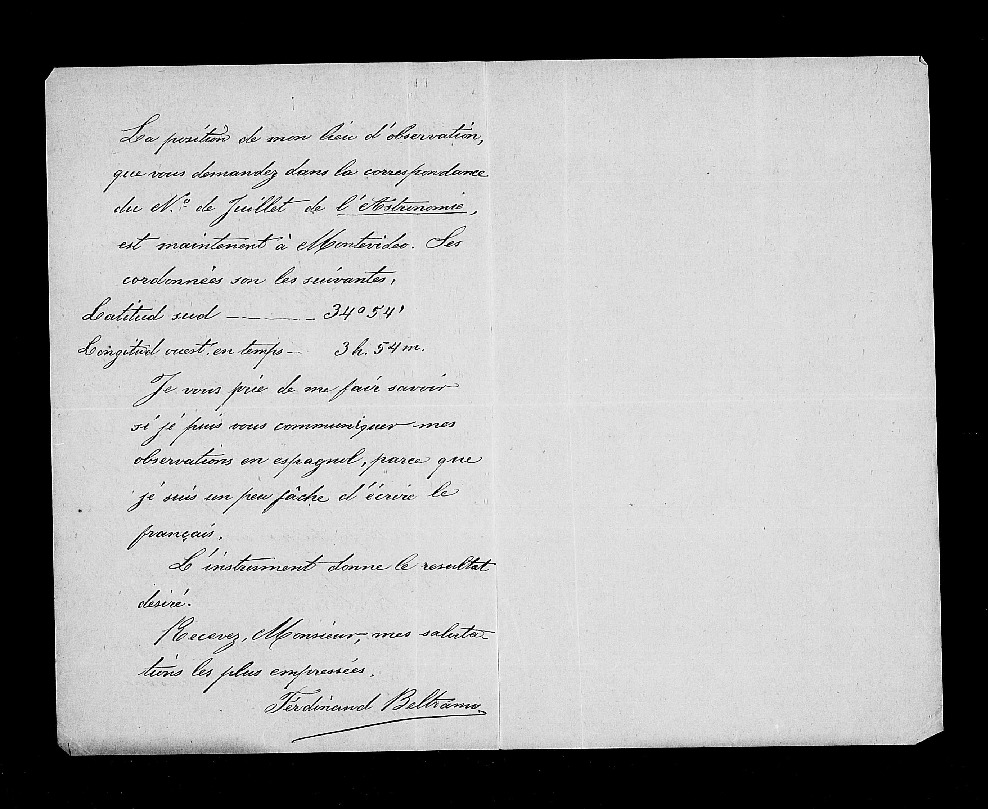 La position de mon lieu d'observation,
que vous demandez dans la correspondance
du N.o de Juillet de l'Astronomie,
est maintenent à Montevideo. Ses
cordonnées son les suivantes,
Latitud sud ——— 34° 54'
Longitud ouest. en temps — 3 h. 54 m.
Je vous prie de me fair savoir
si je puis vous communiquer mes
observations en espagnol, parce que
je suis un peu fâche d'écrire le
français.
L'instrument donne le resultat
désiré.
Recevez, Monsieur, mes saluta-
tions les plus empressées.
Ferdinand Beltramo